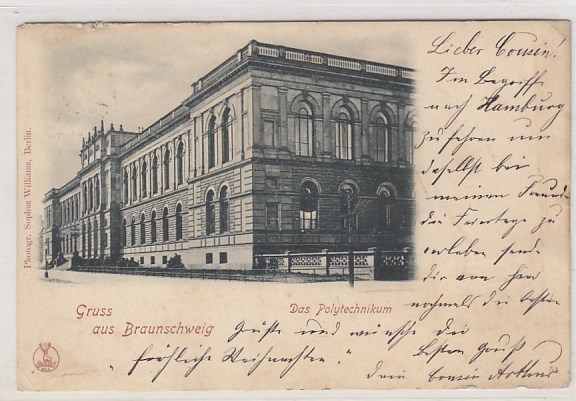 Lieber Cousin!
Im Begriffe
nach Hamburg
zu fahren um
daselbst bei
meinem Freunde
die Feiertage zu
verleben sende
dir von hier
nochmals die besten
Grüße und wünsche dir
"fröhliche Weihnachten."
Besten Gruß
Dein Cousin Arthur
Gruss
aus Braunschweig
Das Polytechnikum
Photogr. Sophus Williams, Berlin.